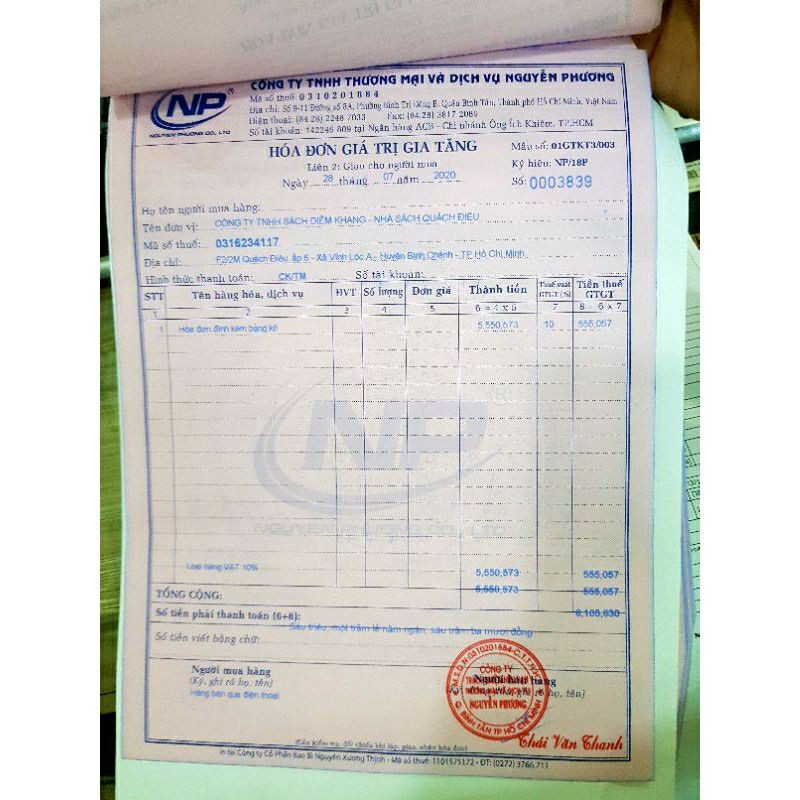 NP
NGUYEN PHUONG CO., LTD
CÔNG TY TNHH THƯƠNG MẠI VÀ DỊCH VỤ NGUYÊN PHƯƠNG
Mã số thuế: 0310201884
Địa chỉ: Số 9-11 Đường số 8A, Phường Bình Trị Đông B, Quận Bình Tân, Thành phố Hồ Chí Minh, Việt Nam
Điện thoại: (84.28) 2248 7033 Fax: (84.28) 3817 2089
Số tài khoản: 142246 809 tại Ngân hàng ACB - Chi nhánh Ông Ích Khiêm, TP.HCM
HÓA ĐƠN GIÁ TRỊ GIA TĂNG
Mẫu số: 01GTKT3/003
Liên 2: Giao cho người mua
Ký hiệu: NP/18P
Ngày 28 tháng 07 năm 2020
Số: 0003839
Họ tên người mua hàng:
Tên đơn vị: CÔNG TY TNHH SÁCH DIỄM KHANG - NHÀ SÁCH QUÁCH ĐIÊU
Mã số thuế: 0316234117
Địa chỉ: F2/2M Quách Điêu, ấp 6 - Xã Vĩnh Lộc A - Huyện Bình Chánh - TP Hồ Chí Minh
Hình thức thanh toán: CK/TM Số tài khoản:
STT Tên hàng hóa, dịch vụ ĐVT Số lượng Đơn giá Thành tiền Thuế suất GTGT (%) Tiền thuế GTGT
1 2 3 4 5 6 = 4 x 5 7 8 = 6 x 7
1 Hóa đơn đính kèm bảng kê 5,550,573 10 555,057
NP
NGUYEN PHUONG CO., LTD
Loại hàng VAT 10% 5,550,573 555,057
TỔNG CỘNG: 5,550,573 555,057
Số tiền phải thanh toán (6+8): 6,105,630
Số tiền viết bằng chữ: Sáu triệu, một trăm lẻ năm ngàn, sáu trăm ba mươi đồng
Người mua hàng
(Ký, ghi rõ họ, tên)
Hàng bán qua điện thoại
Người bán hàng
M.S.D.N:0310201884-C.T.T.N.H.H
CÔNG TY
NGUYÊN PHƯƠNG
Q. BÌNH TÂN TP HỒ CHÍ MINH
Thái Văn Thanh
(Cần kiểm tra, đối chiếu khi lập, giao, nhận hóa đơn)
In tại Công ty Cổ Phần Bao Bì Nguyên Xương Thịnh - Mã số thuế: 1101575172 - ĐT: (0272) 3766 711